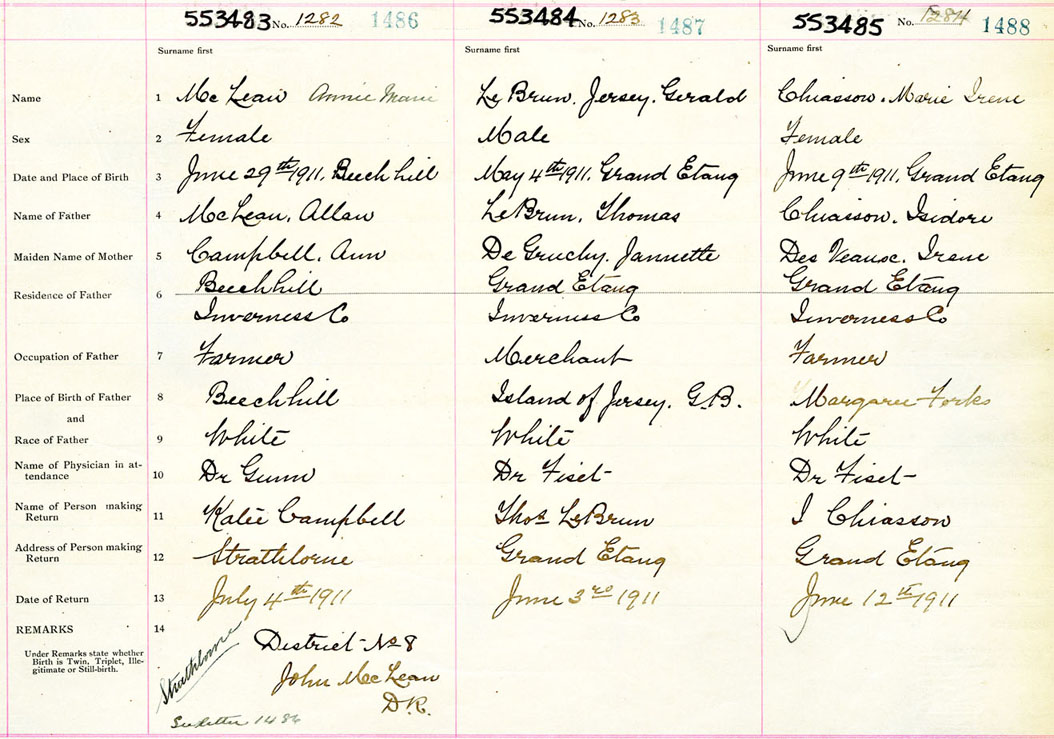 553483 No. 1282 1486 553484 No. 1283 1487 553485 No. 1284 1488
Surname first Surname first Surname first
Name 1 McLean Annie Marie LeBrun, Jersey, Gerald Chiasson, Marie Irene
Sex 2 Female Male Female
Date and Place of Birth 3 June 29th 1911, Beech hill May 4th 1911, Grand Etang June 9th 1911, Grand Etang
Name of Father 4 McLean, Allan LeBrun, Thomas Chiasson, Isidore
Maiden Name of Mother 5 Campbell, Ann De Gruchy, Jannette Des Veausc, Irene
Residence of Father 6 Beechhill Grand Etang Grand Etang
Inverness Co Inverness Co Inverness Co
Occupation of Father 7 Farmer Merchant Farmer
Place of Birth of Father 8 Beechhill Island of Jersey, G.B. Margaree Forks
and
Race of Father 9 White White White
Name of Physician in at-
tendance 10 Dr Gunn Dr Fiset Dr Fiset
Name of Person making
Return 11 Katie Campbell Thos LeBrun I Chiasson
Address of Person making
Return 12 Strathlorne Grand Etang Grand Etang
Date of Return 13 July 4th 1911 June 3rd 1911 June 12th 1911
REMARKS 14
Under Remarks state whether
Birth is Twin, Triplet, Ille-
gitimate or Still-birth.
District No 8
Strathlorne
John McLean
D.R.
See letter 1486